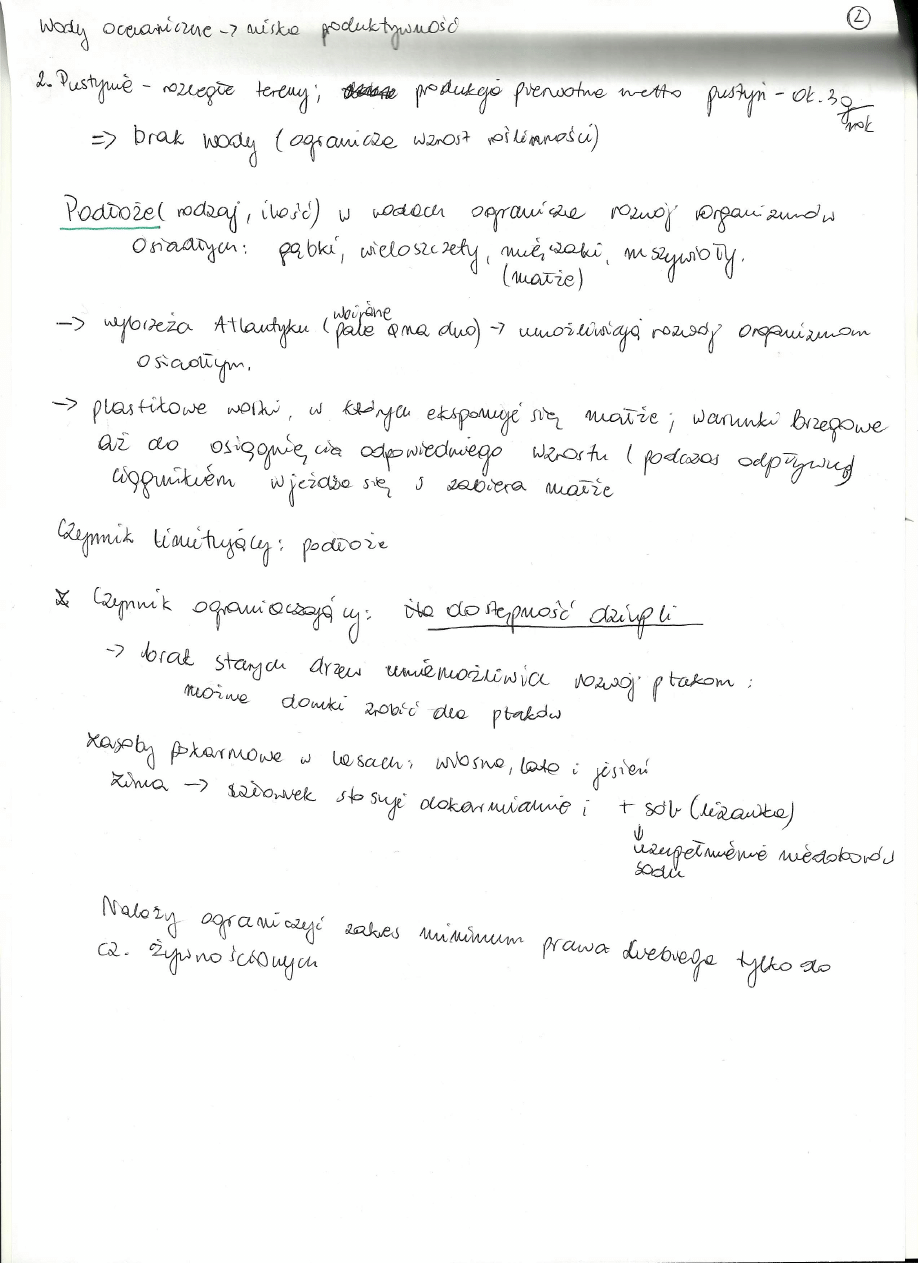 ②
Wody oceaniczne → niska produktywność
2. Pustynie - rozległe tereny; produkcja pierwotna netto pustyń - ok. 3 g/rok
=> brak wody (ogranicza wzrost roślinności)
Podłoże (rodzaj, ilość) w wodach ogranicza rozwój organizmów
osiadłych: gąbki, wieloszczety, mięczaki, mszywioły.
(małże)
→ wybrzeża Atlantyku (wbijane pale na dno) → umożliwiają rozwój organizmom
osiadłym.
→ plastikowe worki, w których eksponuje się małże; warunki brzegowe
aż do osiągnięcia odpowiedniego wzrostu (podczas odpływu
ciągnikiem wjeżdża się i zabiera małże
Czynnik limitujący: podłoże
Czynnik ograniczający: dostępność dziupli
→ brak starych drzew uniemożliwia rozwój ptakom:
można domki zrobić dla ptaków
Zasoby pokarmowe w lasach: wiosna, lato i jesień
zima → człowiek stosuje dokarmianie i + sól (lizawka)
↓
uzupełnienie niedoborów
sodu
Należy ograniczyć zakres minimum prawa Liebiega tylko do
cz. żywnościowych